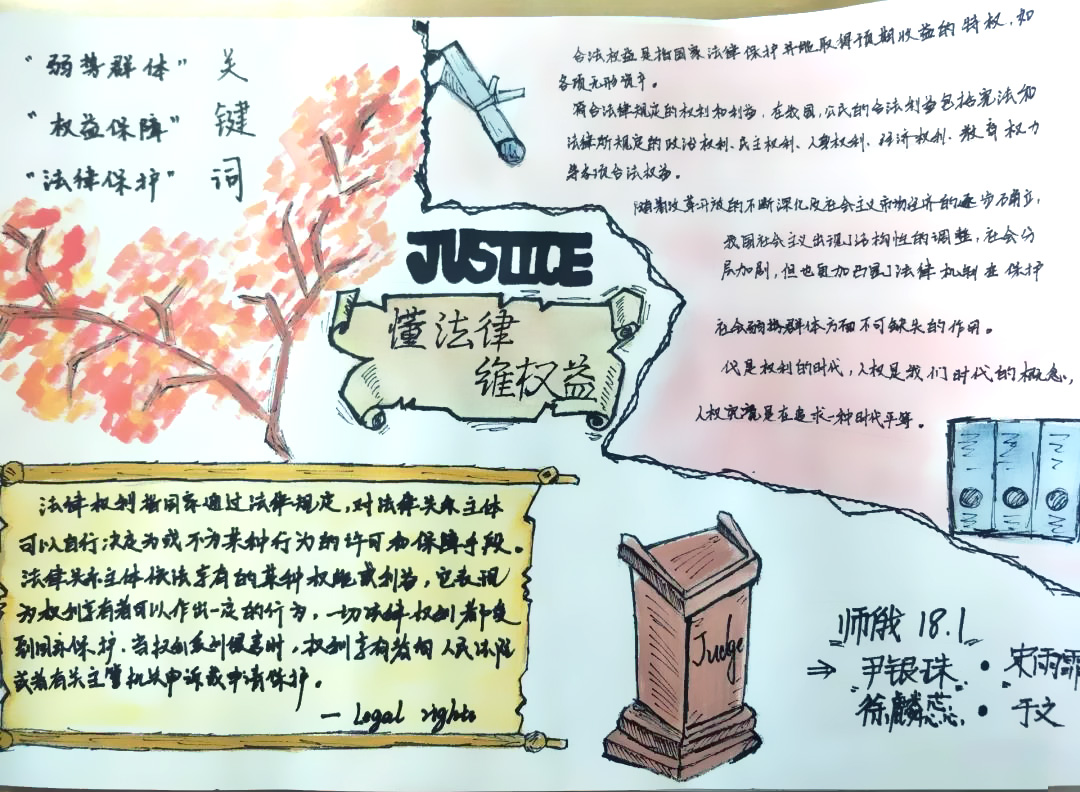 "弱势群体" 关
"权益保障" 键
"法律保护" 词
合法权益是指国家法律保护并能取得预期收益的特权，如
各项无形资产。
符合法律规定的权利和利益，在我国，公民的合法利益包括宪法和
法律所规定的政治权利、民主权利、人身权利、经济权利、教育权力
等各项合法权益。
随着改革开放的不断深化及社会主义市场经济的逐步确立，
我国社会主义出现了结构性的调整，社会分
层加剧，但也更加凸显了法律机制在保护
社会弱势群体方面不可缺失的作用。
代是权利的时代，人权是我们时代的概念，
人权究竟是在追求一种时代平等。
JUSTICE
懂法律
维权益
法律权利指国家通过法律规定，对法律关系主体
可以自行决定为或不为某种行为的许可和保障手段。
法律关系主体依法享有的某种权能或利益，它表现
为权利享有者可以作出一定的行为，一切法律权利都受
到国家保护，当权利受到侵害时，权利享有者向人民法院
或者有关主管机关申诉或申请保护。
— Legal rights
Judge
师俄 18.1
⇒ 尹银珠 · 宋雨霏
徐麟蕊 · 于文